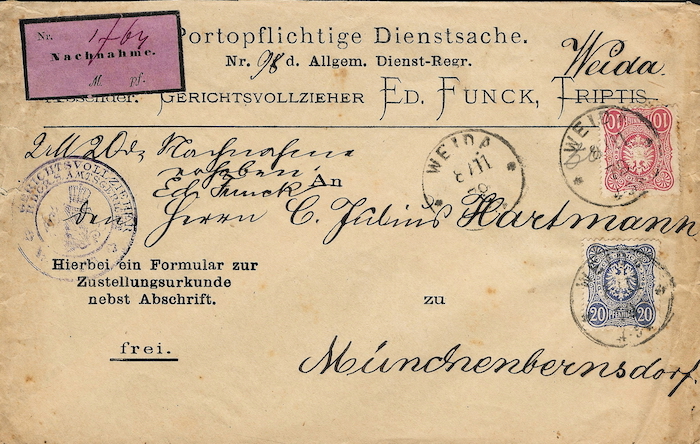 Nr. 1764
Nachnahme.
M. pf.
Portopflichtige Dienstsache.
Nr. 98 d. Allgem. Dienst-Regr.
Weida.
Absender: GERICHTSVOLLZIEHER ED. FUNCK, TRIPTIS
2M 20 Nachnahme
Ed. Funck
An
den Herrn C. Julius Hartmann
WEIDA
8/11
WEIDA
10
10
GERICHTSVOLLZIEHER
Hierbei ein Formular zur
Zustellungsurkunde
nebst Abschrift.
zu
20 PFENNIG 20
frei.
Münchenbernsdorf.